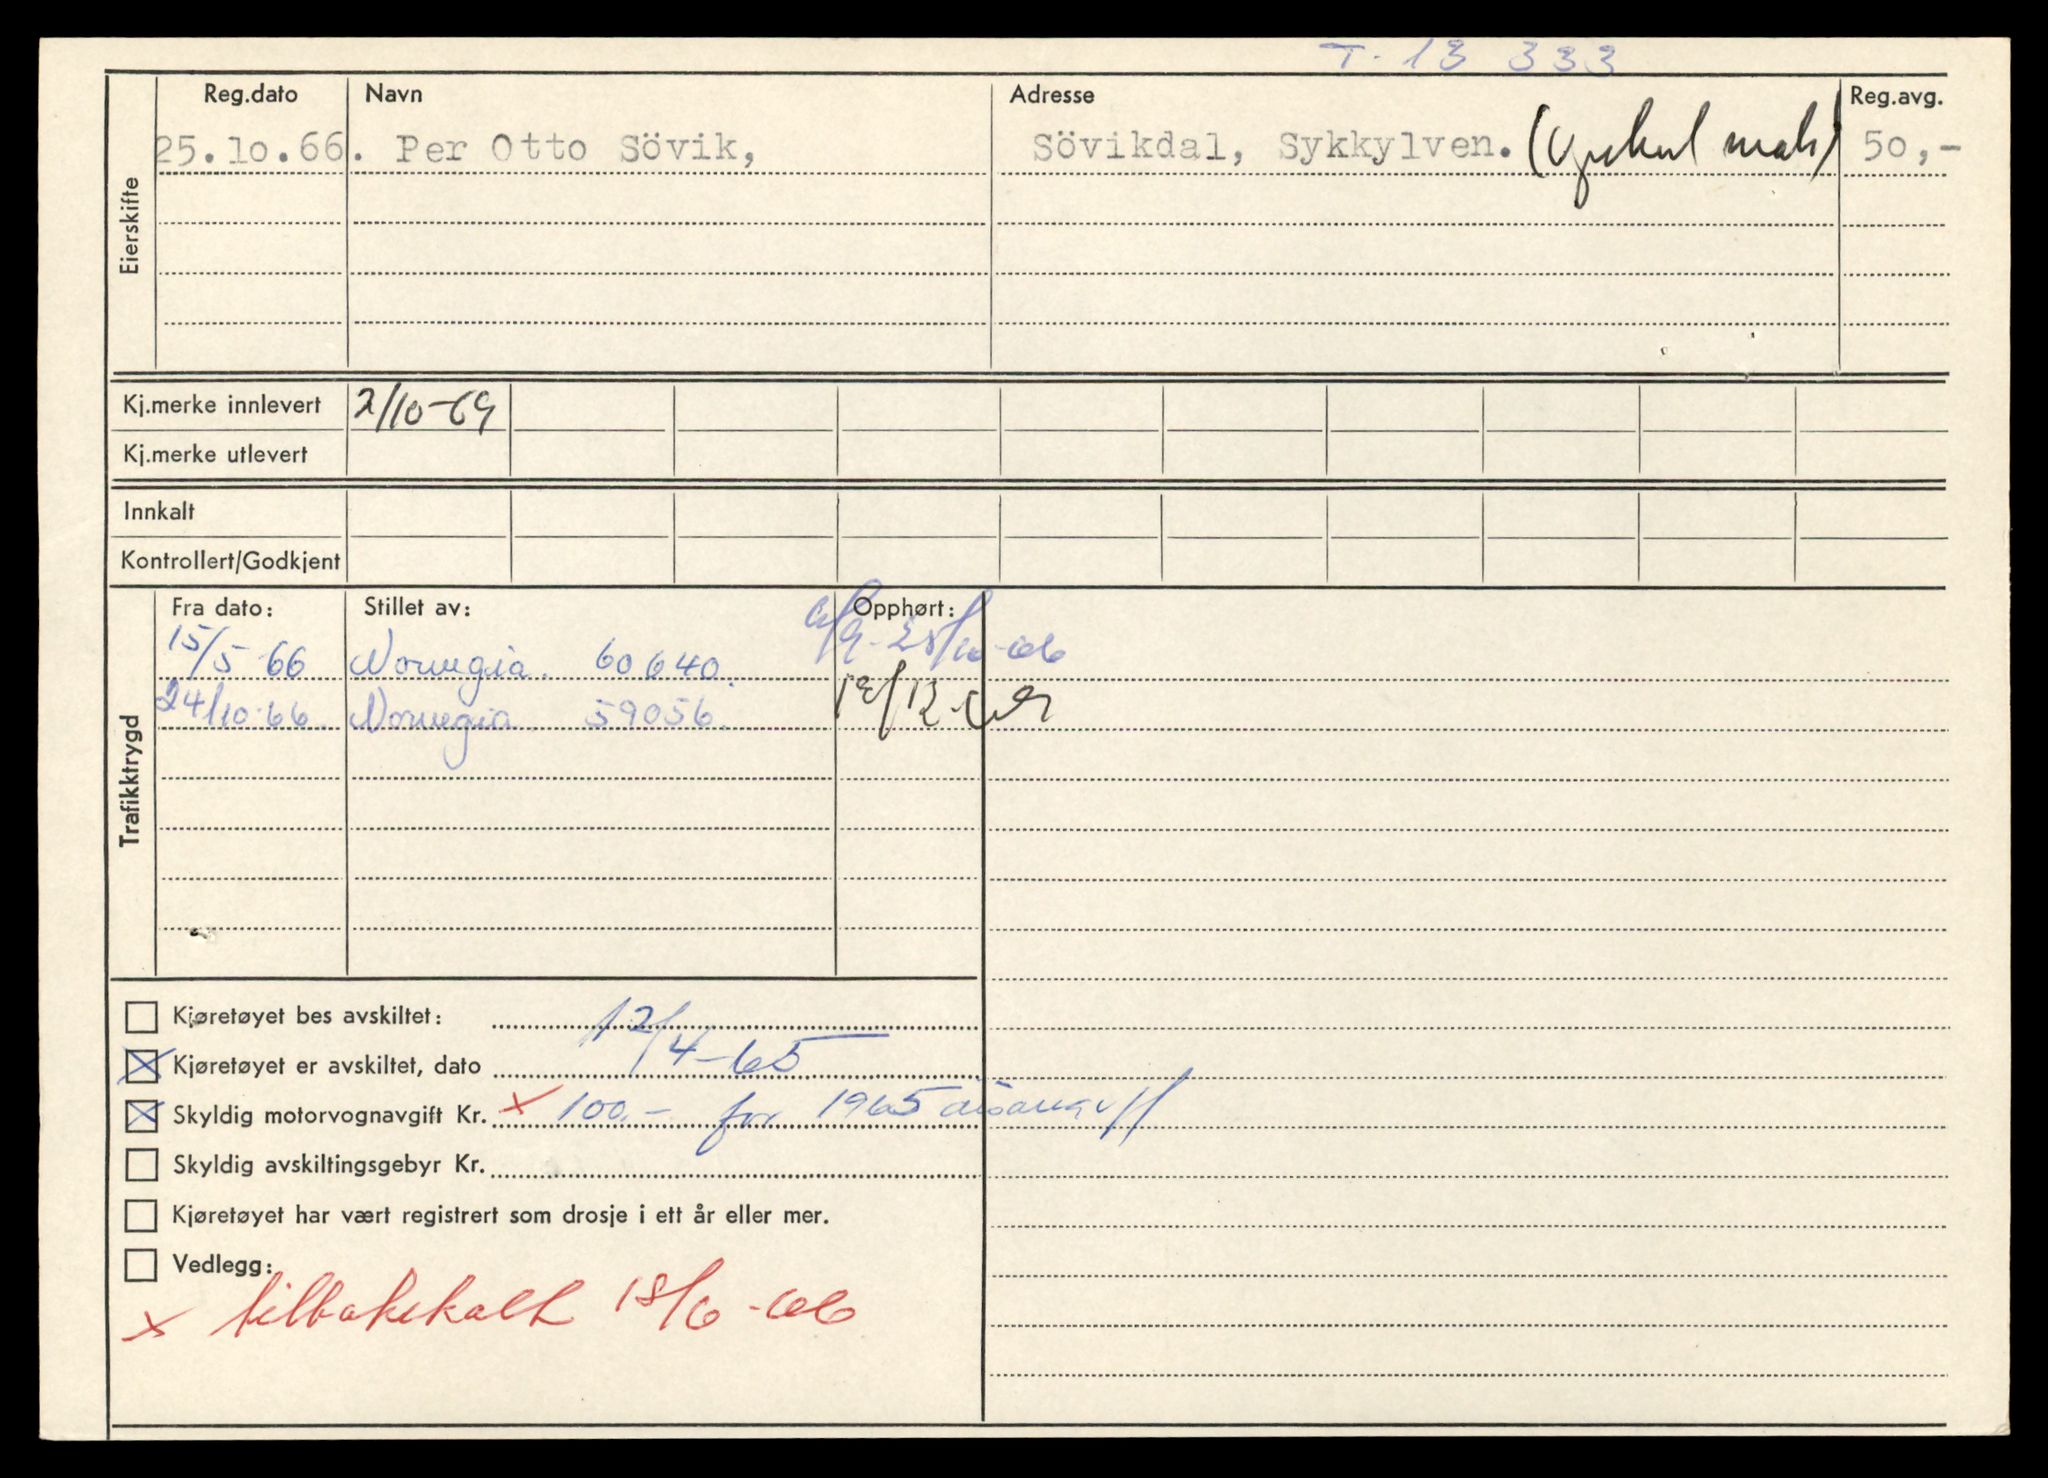 T. 13 333
Eierskifte
Reg.dato Navn Adresse Reg.avg.
25.10.66. Per Otto Sövik, Sövikdal, Sykkylven. 50,-
Kj.merke innlevert 2/10-69
Kj.merke utlevert
Innkalt
Kontrollert/Godkjent
Trafikktrygd
Fra dato: Stillet av: Opphørt:
15/5 66 Norvegia. 60640.
24/10-66. Norvegia. 59056.
Kjøretøyet bes avskiltet:
Kjøretøyet er avskiltet, dato 12/4-65
Skyldig motorvognavgift Kr. x 100,- for 1965
Skyldig avskiltingsgebyr Kr.
Kjøretøyet har vært registrert som drosje i ett år eller mer.
Vedlegg:
x tilbakekalt 18/6-66